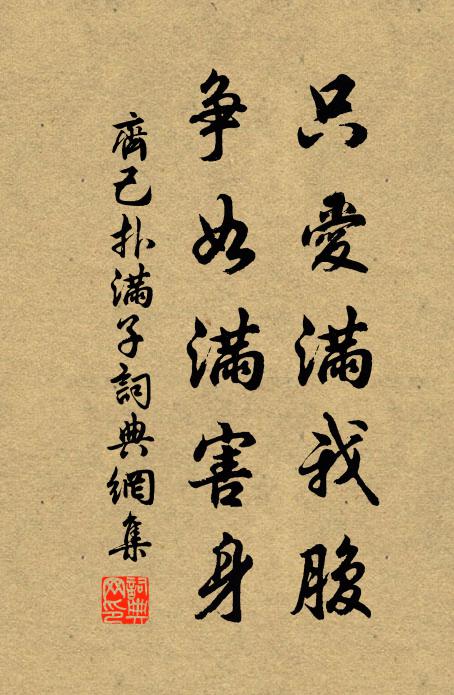 只愛滿我腹
争如滿害身
齊己扑滿子詞典網集
詞典網印